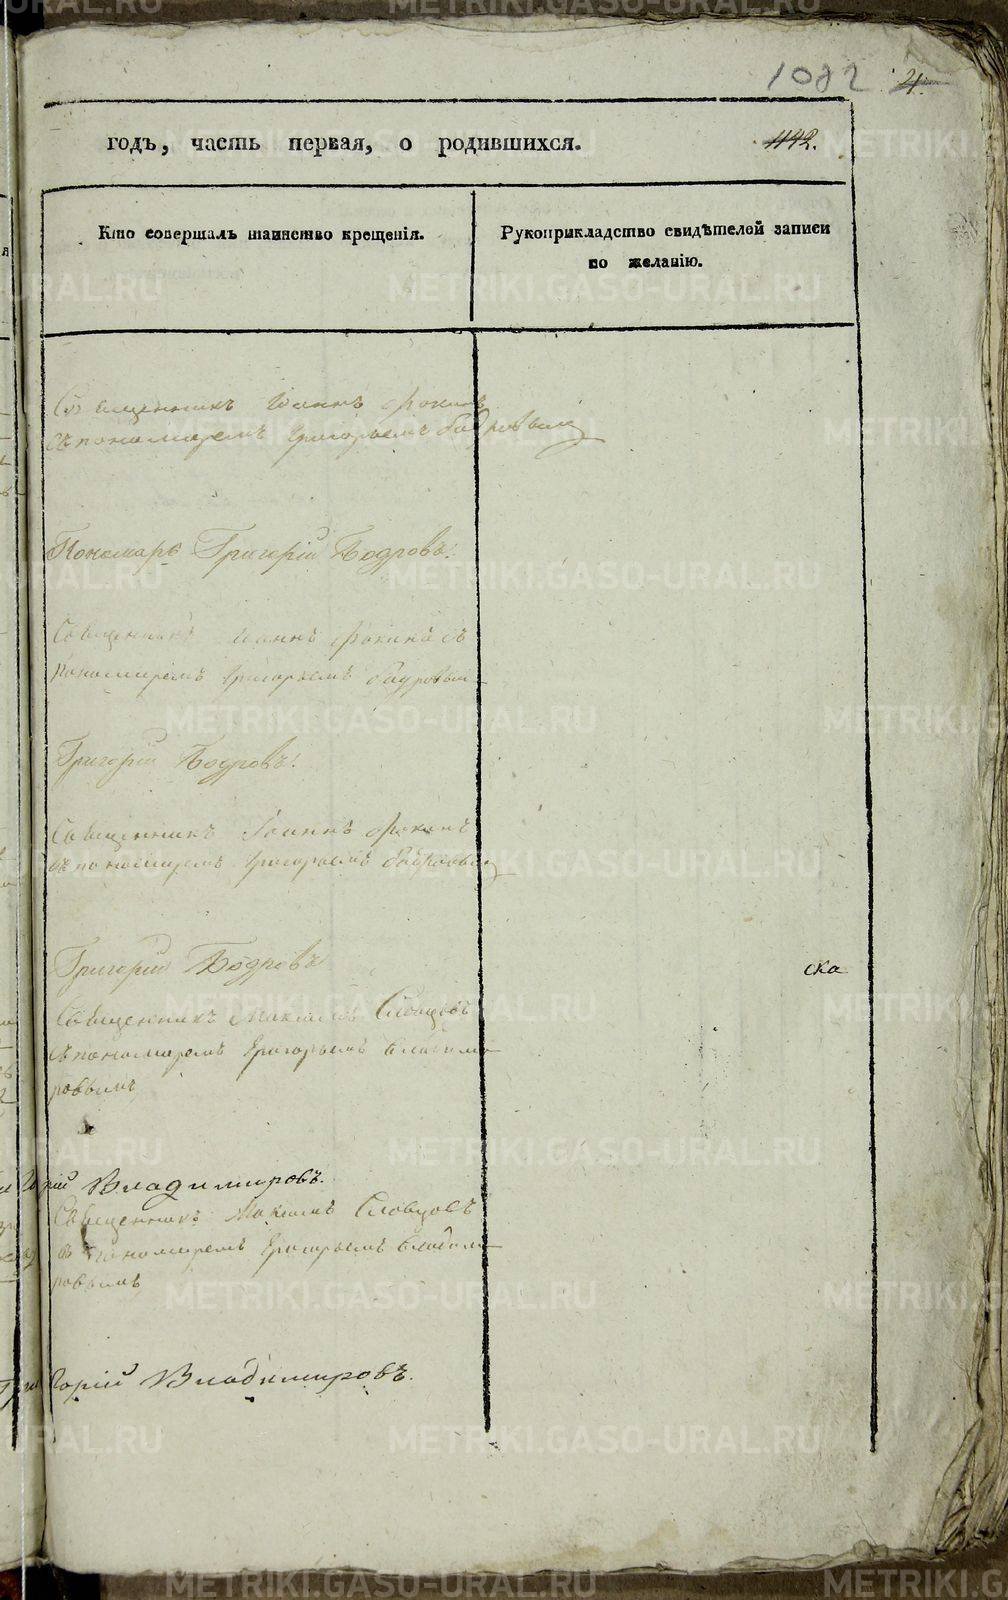 1082 21.
годъ, часть первая, о родившихся. 1142.
Кто совершалъ таинство крещенія.
Рукоприкладство свидѣтелей записи
по желанію.
Священникъ Іоаннъ Фокинъ
съ пономаремъ Григорьемъ Бодровымъ
Пономарь Григорій Бодровъ.
Священникъ Іоаннъ Фокинъ съ
пономаремъ Григорьемъ Бодровым
Григорій Бодровъ.
Священникъ Іоаннъ Фокинъ
съ пономаремъ Григорьемъ Бодровым
Григорій Бодровъ
ска
Священникъ Максимъ Словцовъ
съ пономаремъ Григорьемъ Владими-
ровымъ
рій Владимировъ.
Священникъ Максимъ Словцовъ
съ пономаремъ Григорьемъ Владими-
ровымъ
горій Владимировъ.
METRIKI.GASO-URAL.RU